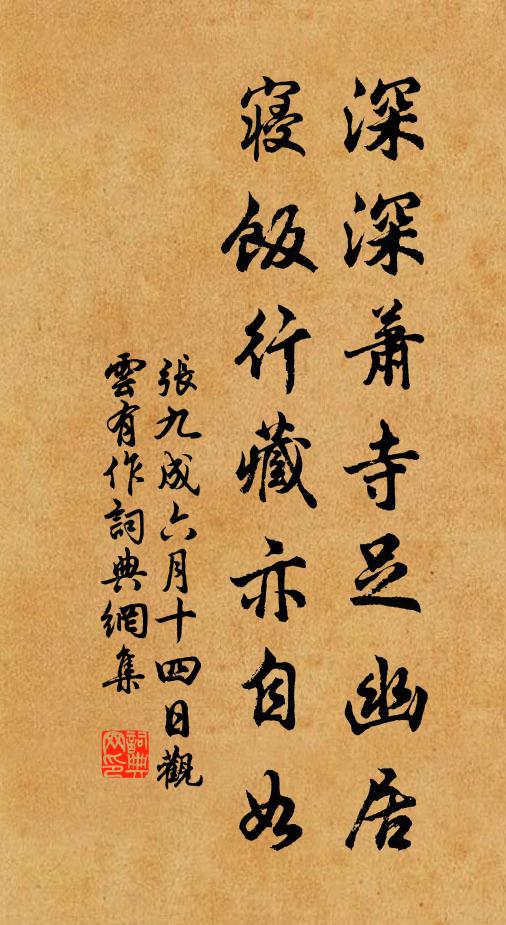 深深蕭寺足幽居
寢飯行藏亦自如
張九成六月十四日觀
雲有作詞典網集
詞典
网印